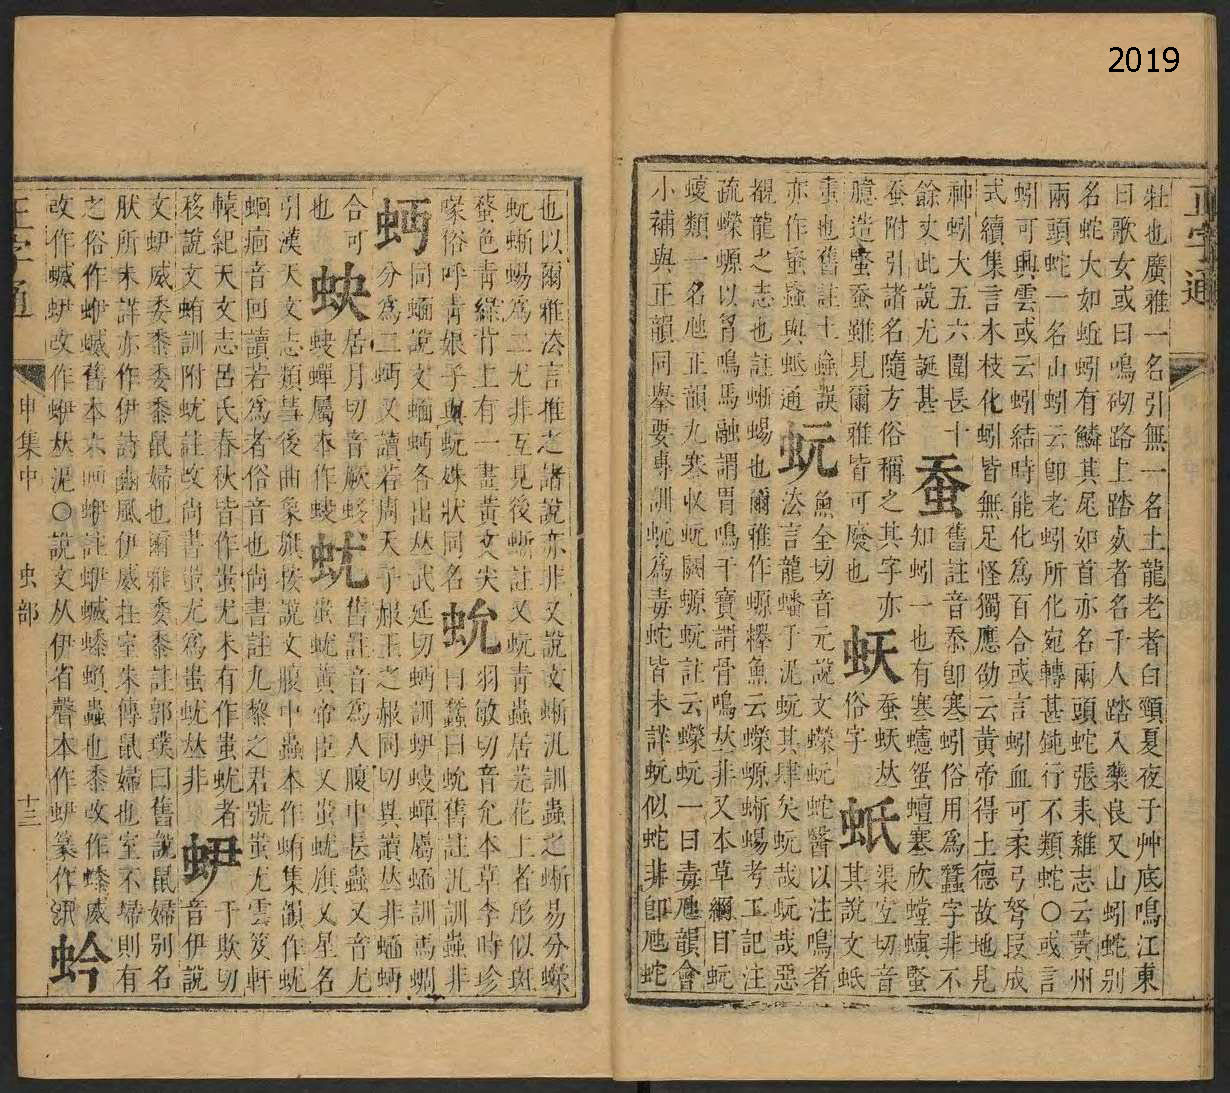 2019
正字通
牡也廣雅一名引無一名土龍老者白頸夏夜于艸底鳴江東
曰歌女或曰鳴砌路上踏殺者名千人踏入藥良又山蚓蛇別
名蛇大如蚯蚓有鱗其尾如首亦名兩頭蛇張耒雜志云黃州
兩頭蛇一名山蚓云卽老蚓所化宛轉甚鈍行不類蛇〇或言
蚓可興雲或云蚓結時能化爲百合或言蚓血可柔弓弩叚成
式續集言木枝化蚓皆無足怪獨應劭云黃帝得土德故地見
神蚓大五六圍長十
餘丈此說尤誕甚
蚕
舊註音忝卽塞蚓俗用爲蠶字非不
知蚓一也有塞蟪蛩蟺塞欣螳螾蜸
蚕附引諸名隨方俗稱之其字亦
臆造蜸蚕雖見爾雅皆可廢也
蚨
蚕蚨𠀤
俗字
蚔
渠宜切音
其說文蚔
畫也舊註土蜂誤
亦作蜜蟁與蚳通
蚖
魚全切音元說文蠑蚖蛇醫以注鳴者
法言龍蟠于泥蚖其肆矣蚖哉蚖哉惡
覩龍之志也註蜥蜴也爾雅作螈釋魚云蠑螈蜥蜴考工記注
疏蠑螈以胷鳴馬融謂胃鳴干寶謂骨鳴𠀤非又本草綱目蚖
蝮類一名虺正韻九寒收蚖闕螈蚖註云蠑蚖一曰毒虺韻會
小補與正韻同舉要專訓蚖爲毒蛇皆未詳蚖似蛇非卽虺蛇
也以爾雅法言推之諸說亦非又說文蜥虬訓蟲之蜥易分蠑
蚖蜥蜴爲二尤非互見後蜥註又蚖青蟲居芫花上者形似斑
蝥色青綠背上有一畫黃文尖
喙俗呼青娘子與蚖殊狀同名
蚘
羽敏切音允本草李時珍
曰蠶曰蚘舊註虬訓蟲非
蛃
同蝒說文蝒蛃各出𠀤武延切蛃訓蛢螻蟬屬蝒訓馬蜩
分爲二蛃又讀若周天子赧王之赧同切異讀𠀤非蝒蛃
合可
也
蚗
居月切音厥蛥
蚗螻蟬屬本作蛥
蚘
舊註音爲人腹中長蟲又音尤
蚩蚘黃帝臣又蚩蚘旗又星名
引漢天文志類彗後曲象旗按說文腹中蟲本作蛕集韻作蚘
蛔痐音回讀若爲者俗音也尙書註九黎之君號蚩尤雲笈軒
轅紀天文志呂氏春秋皆作蚩尤未有作蚩蚘者
移說文蛕訓附蚘註改尙書蚩尤爲蚩蚘𠀤非
蛜
于欺切
音伊說
文蛜威委黍委黍鼠婦也爾雅委黍註郭璞曰舊說鼠婦別名
肰所未詳亦作伊詩豳風伊威在室朱傳鼠婦也室不埽則有
之俗作蛜蝛舊本六畫蛜註蛜蝛蟂蟲也黍改作蟂威
改作蝛蛜改作蛜𠀤泥〇說文从伊省聲本作蛜篆作
蚙
正字通
申集中
虫部
十三